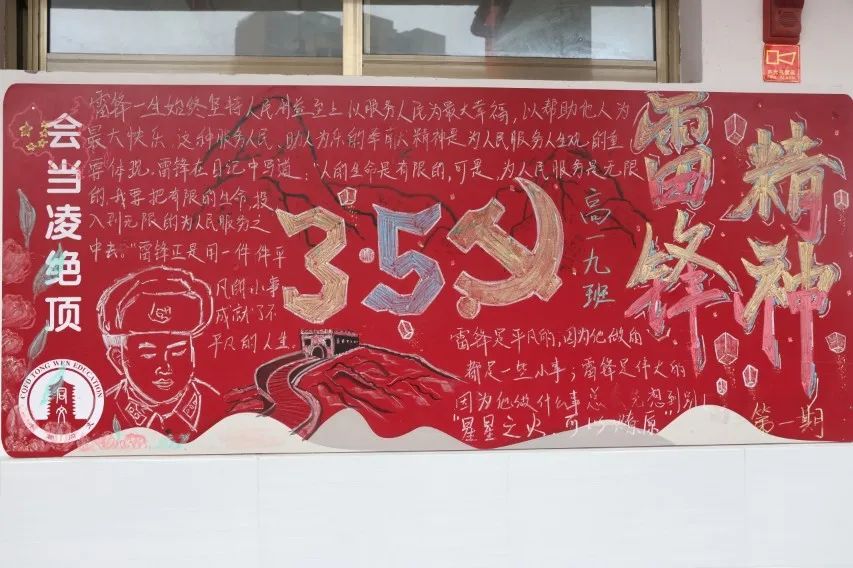 会当凌绝顶
COED TONG WEN EDUCATION
雷锋一生始终坚持人民利益至上以服务人民为最大幸福，以帮助他人为
最大快乐。这种服务人民、助人为乐的奉献精神是为人民服务人生观的重
要体现。雷锋在日记中写道：“人的生命是有限的，可是，为人民服务是无限
的，我要把有限的生命，投
入到无限的为人民服务之
中去。”雷锋正是用一件件平
凡的小事
成就了不
平凡的人生。
3·5
高一九班
雷锋
精神
雷锋是平凡的，因为他做的
都是一些小事；雷锋是伟大的
因为他做什么事总 想到别人
“星星之火，可以燎原”
第一期